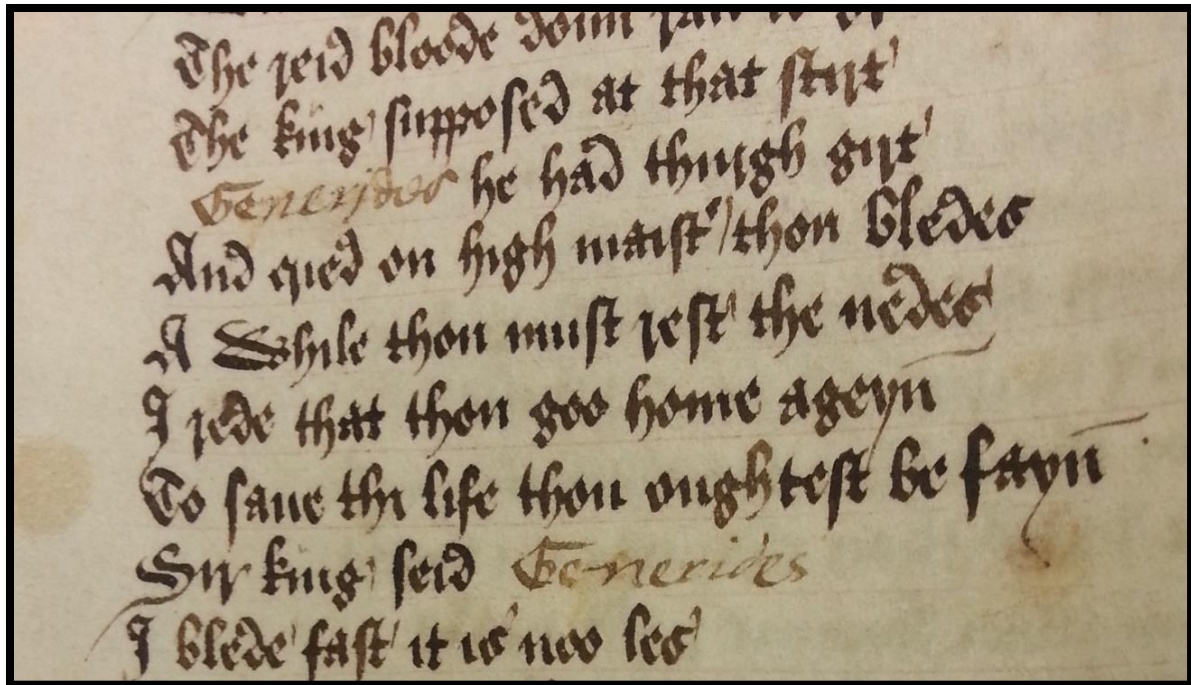 The reid bloode doun ran
The king supposed at that stirt
Generides he had thurgh girt
And cried on high maist thou bledes
A While thou must rest the nedes
I rede that thou goo home ageyn
To saue thi life thou oughtest be fayn
Sir king seid Generides
I blede fast it is noo les